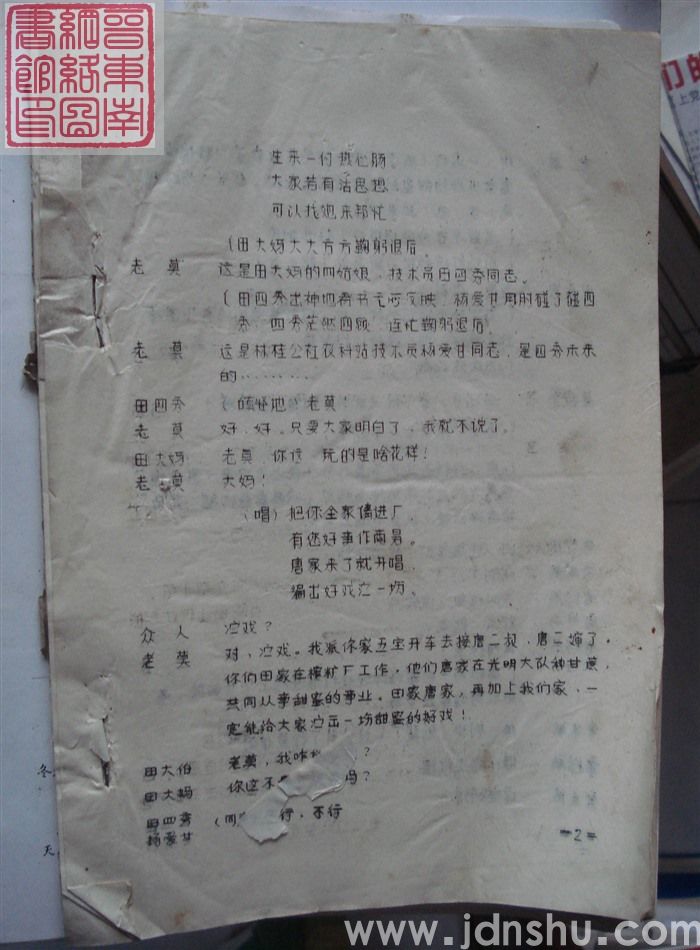 晋東南
網絡圖
書館印
生来一付热心肠
大家若有活思想
可以找她来帮忙
〔田大妈大大方方鞠躬退后
老莫 这是田大妈的四姑娘，技术员田四秀同志。
〔田四秀出神地看书无所反映，杨爱甘用肘碰了碰四
秀，四秀茫然四顾，连忙鞠躬退后。
老莫 这是林桂公社农科站技术员杨爱甘同志，是四秀未来
的………
田四秀 〈嗔怪地〉老莫！
老莫 好，好。只要大家明白了，我就不说了。
田大妈 老莫 你这 玩的是啥花样！
老莫 大妈！
（唱）把你全家请进厂
有您好事作商量。
唐家来了就开唱
编出好戏演一场。
众人 演戏？
老莫 对，演戏。我派你家五宝开车去接唐二叔，唐二婶了。
你们田家在榨糖厂工作，他们唐家在光明大队种甘蔗，
共同从事甜蜜的事业。田家唐家，再加上我们家，一
定能给大家演出一场甜蜜的好戏！
田大伯 老莫，我咋 ？
田大妈 你这不 吗？
田四秀
杨爱甘 （同 行，不行
—2—
冬
天
们的
上党
www.jdnshu.com